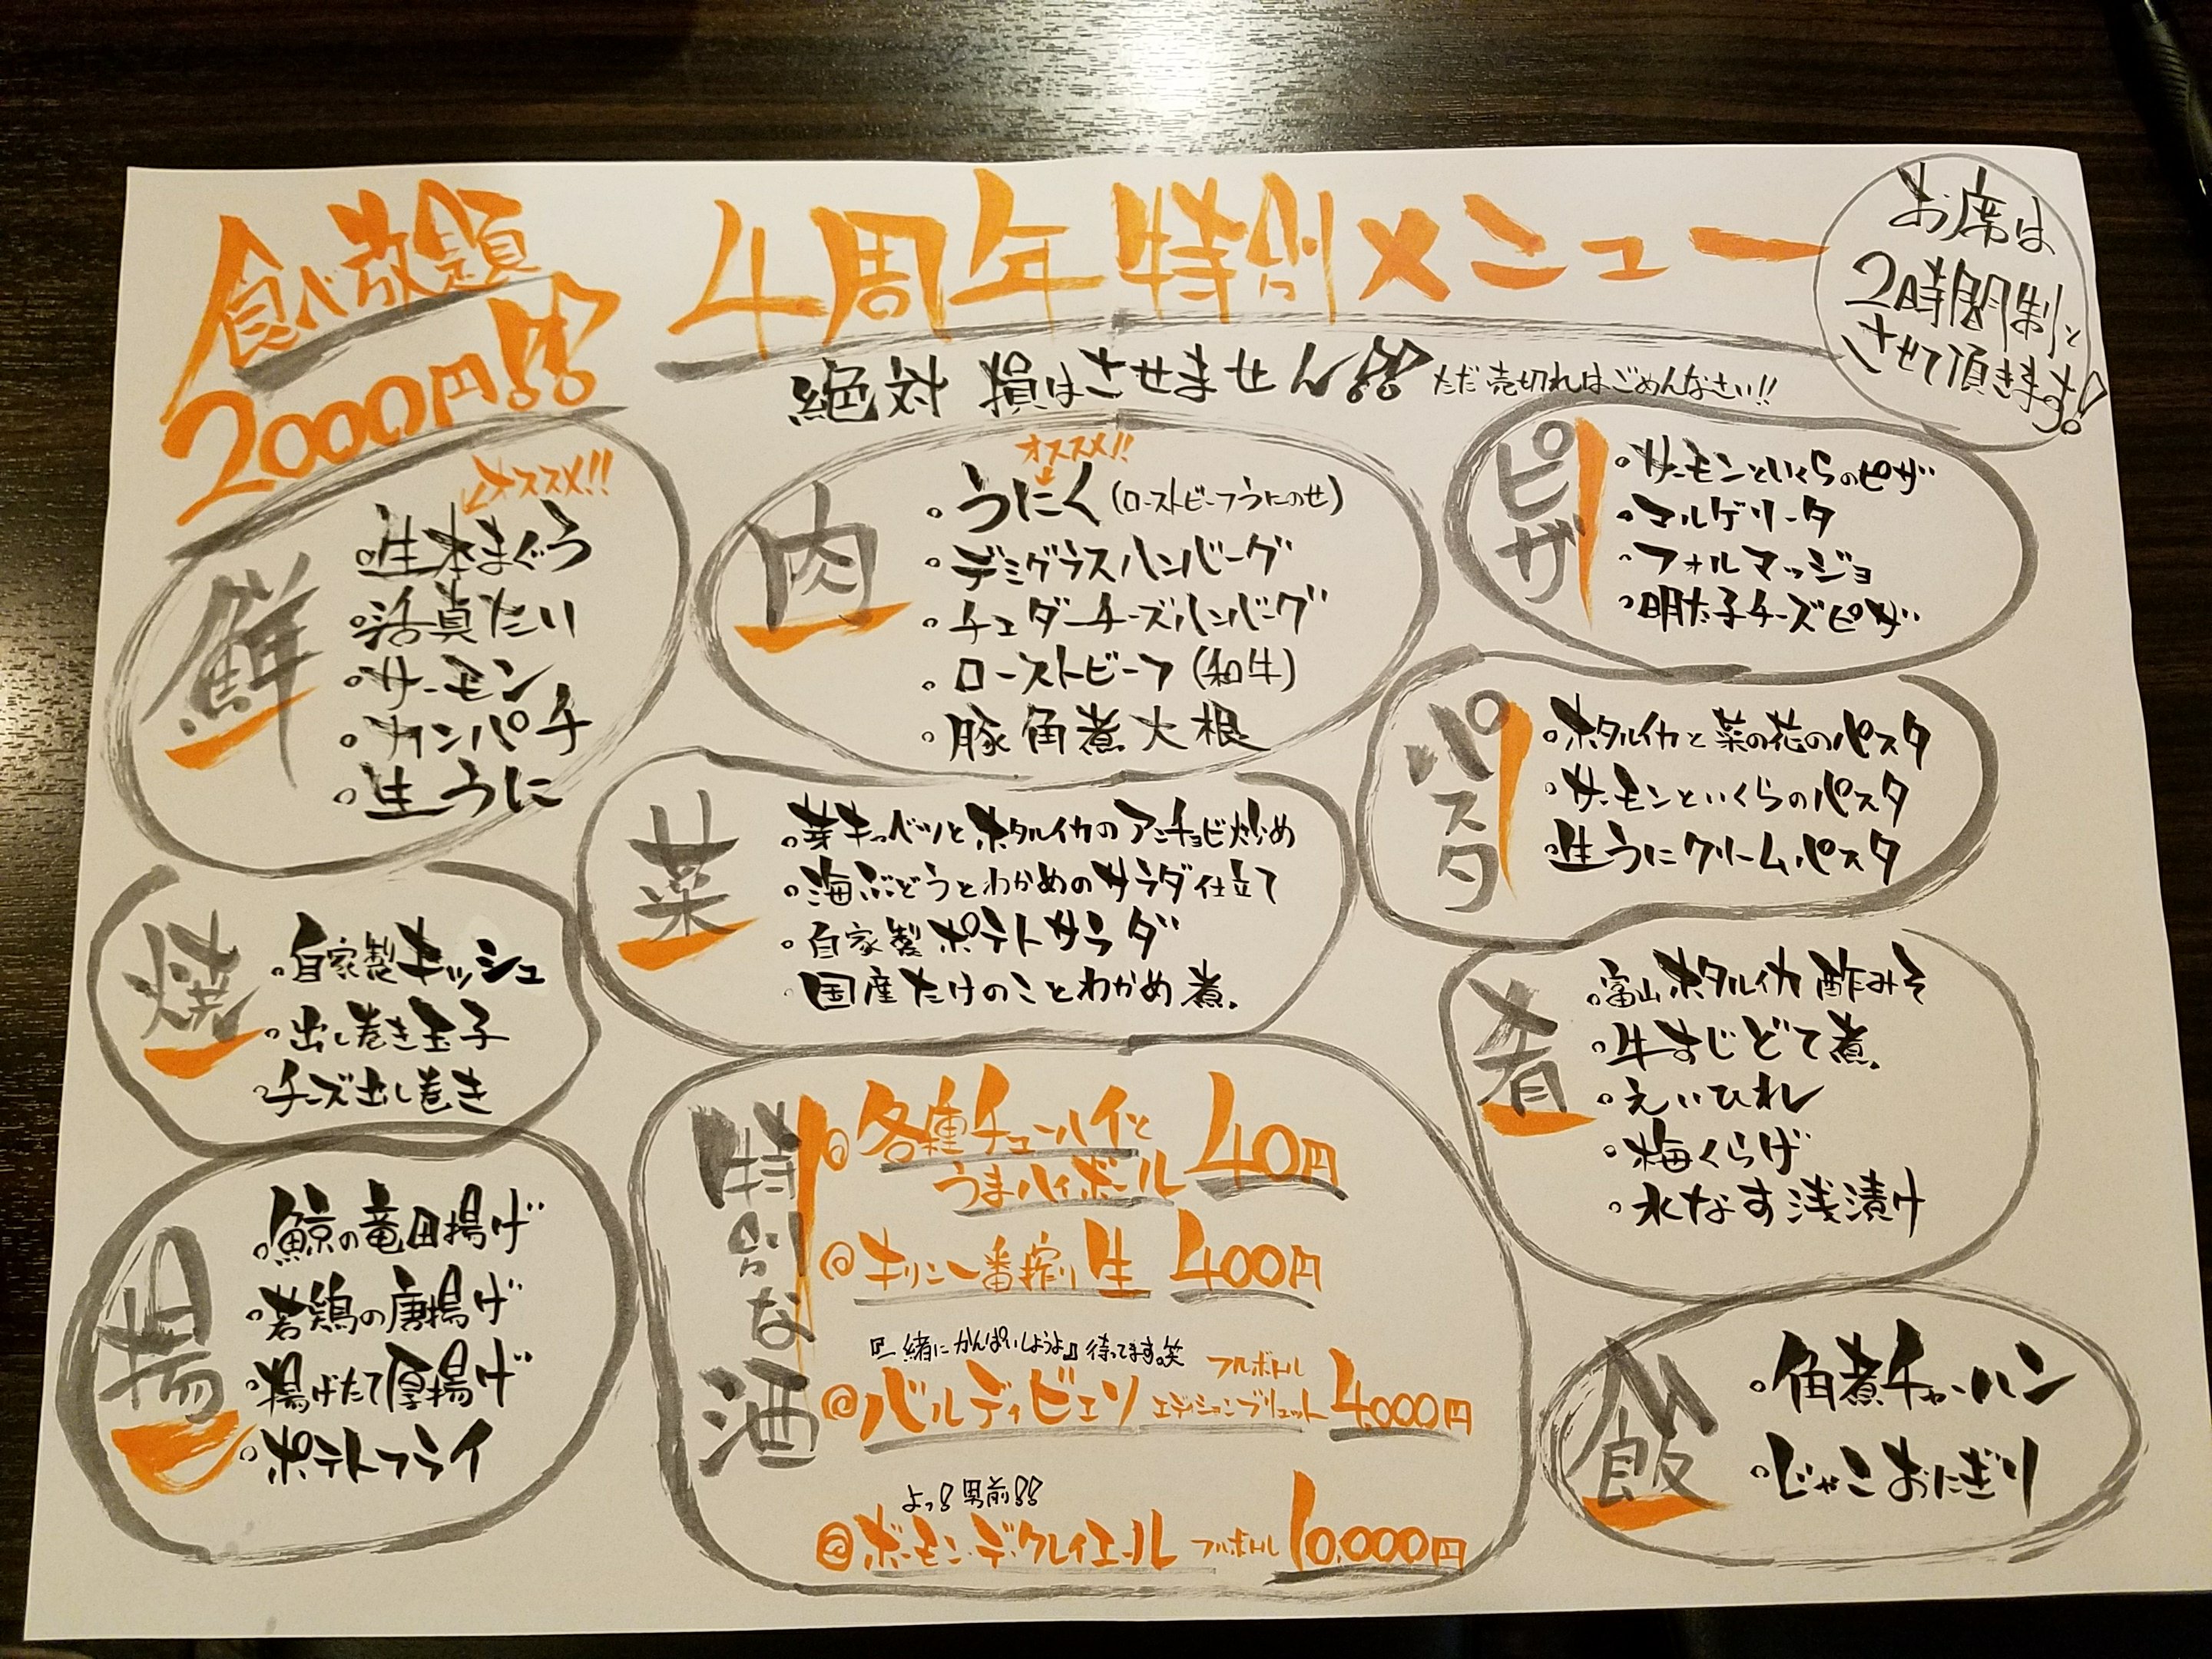 食べ放題
2000円!!
4周年特別メニュー
絶対 損はさせません!! ただ売切れはごめんなさい!!
お席は
2時間制と
させて頂きます!
鮮
オススメ!!
生本まぐろ
活真たい
サーモン
カンパチ
生うに
肉
オススメ!!
うにく(ローストビーフうにのせ)
デミグラスハンバーグ
チェダーチーズハンバーグ
ローストビーフ(和牛)
豚角煮大根
ピザ
サーモンといくらのピザ
マルゲリータ
フォルマッジョ
明太子チーズピザ
パスタ
ホタルイカと菜の花のパスタ
サーモンといくらのパスタ
生うにクリームパスタ
菜
芽キャベツとホタルイカのアンチョビ炒め
海ぶどうとわかめのサラダ仕立て
自家製ポテトサラダ
国産たけのことわかめ煮。
焼
自家製キッシュ
出し巻き玉子
チーズ出し巻き
肴
富山ホタルイカ酢みそ
牛すじどて煮。
えいひれ
梅くらげ
水なす浅漬け
揚
鯨の竜田揚げ
若鶏の唐揚げ
揚げたて厚揚げ
ポテトフライ
特別な酒
各種チューハイと
うまハイボール 40円
キリン一番搾り生 400円
『一緒にかんぱいしようよ』待ってます。笑
バルディビエソ エディションブリュット フルボトル 4,000円
よっ!男前!!
ボーモン・デ・クレイエール フルボトル 10,000円
飯
角煮チャーハン
じゃこおにぎり